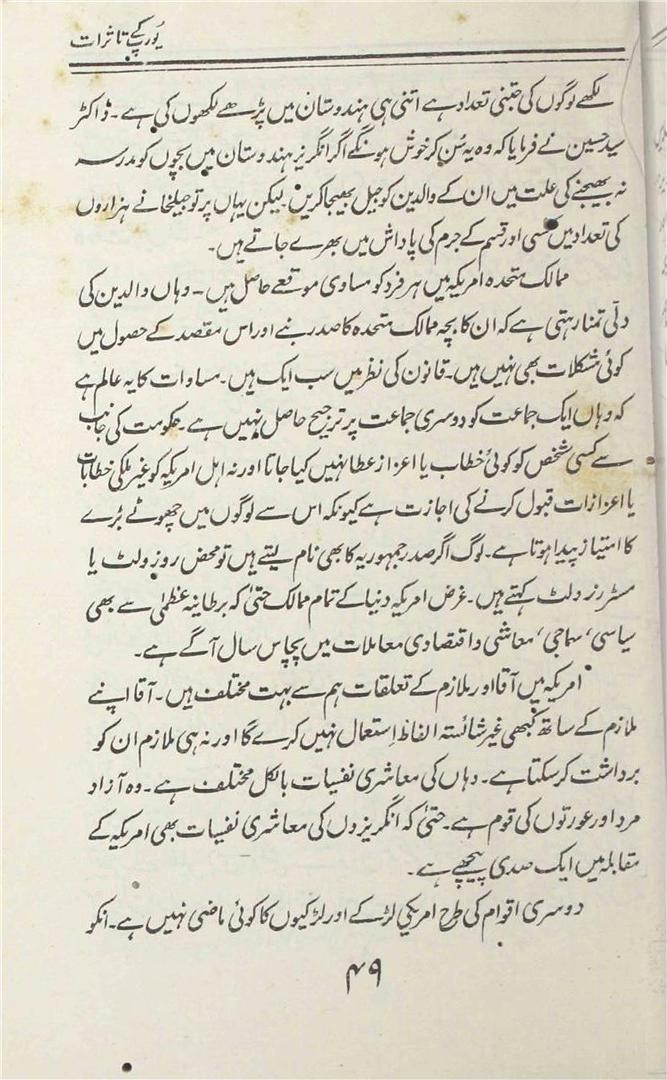 یورپ کے تاثرات
لکھے لوگوں کی جتنی تعداد ہے اتنی ہی ہندوستان میں پڑھے لکھوں کی ہے۔ ڈاکٹر
سید حسین نے فرمایا کہ وہ یہ سُن کر خوش ہونگے اگر انگریز ہندوستان میں بچوں کو مدرسہ
نہ بھیجنے کی علت میں ان کے والدین کو جیل بھیجا کریں۔ لیکن یہاں پر تو جیلخانے ہزاروں
کی تعداد میں کسی اور قسم کے جرم کی پاداش میں بھرے جاتے ہیں۔
ممالک متحدہ امریکہ میں ہر فرد کو مساوی موقعے حاصل ہیں۔ وہاں والدین کی
دلی تمنا رہتی ہے کہ ان کا بچہ ممالک متحدہ کا صدر بنے اور اس مقصد کے حصول میں
کوئی مشکلات بھی نہیں ہیں۔ قانون کی نظر میں سب ایک ہیں۔ مساوات کا یہ عالم ہے
کہ وہاں ایک جماعت کو دوسری جماعت پر ترجیح حاصل نہیں ہے۔ حکومت کی جانب
سے کسی شخص کو کوئی خطاب یا اعزاز عطا نہیں کیا جاتا اور نہ اہل امریکہ کو غیر ملکی خطابات
یا اعزازات قبول کرنے کی اجازت ہے کیونکہ اس سے لوگوں میں چھوٹے بڑے
کا امتیاز پیدا ہوتا ہے۔ لوگ اگر صدر جمہوریہ کا بھی نام لیتے ہیں تو محض روزولٹ یا
مسٹر روزولٹ کہتے ہیں۔ غرض امریکہ دنیا کے تمام ممالک حتیٰ کہ برطانیہ عظمیٰ سے بھی
سیاسی، سماجی، معاشی و اقتصادی معاملات میں پچاس سال آگے ہے۔
امریکہ میں آقا اور ملازم کے تعلقات ہم سے بہت مختلف ہیں۔ آقا اپنے
ملازم کے ساتھ کبھی غیر شائستہ الفاظ اِستعمال نہیں کرے گا اور نہ ہی ملازم ان کو
برداشت کر سکتا ہے۔ وہاں کی معاشری نفسیات بالکل مختلف ہے۔ وہ آزاد
مرد اور عورتوں کی قوم ہے۔ حتیٰ کہ انگریزوں کی معاشری نفسیات بھی امریکہ کے
مقابلہ میں ایک صدی پیچھے ہے۔
دوسری اقوام کی طرح امریکی لڑکے اور لڑکیوں کا کوئی ماضی نہیں ہے۔ انکو
۴۹